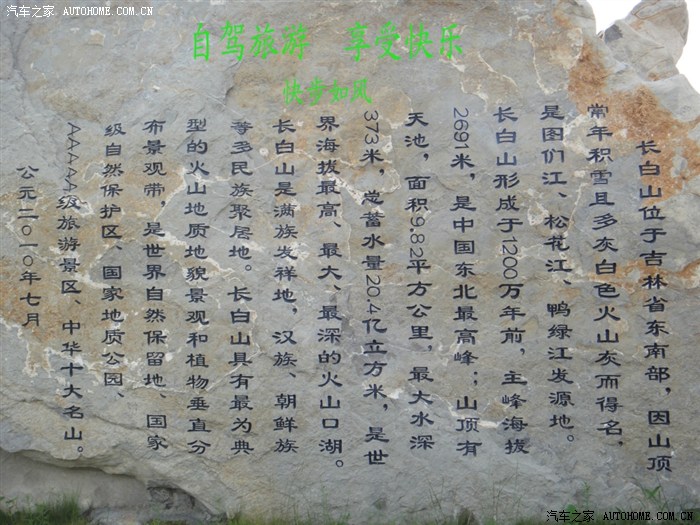 汽车之家 AUTOHOME.COM.CN
自驾旅游 享受快乐
快步如风
长白山位于吉林省东南部，因山顶
常年积雪且多灰白色火山灰而得名，
是图们江、松花江、鸭绿江发源地。
长白山形成于1200万年前，主峰海拔
2691米，是中国东北最高峰；山顶有
天池，面积9.82平方公里，最大水深
373米，总蓄水量20.4亿立方米，是世
界海拔最高、最大、最深的火山口湖。
长白山是满族发祥地，汉族、朝鲜族
等多民族聚居地。长白山具有最为典
型的火山地质地貌景观和植物垂直分
布景观带，是世界自然保留地、国家
级自然保护区、国家地质公园、
AAAAA级旅游景区、中华十大名山。
公元二〇一〇年七月
汽车之家 AUTOHOME.COM.CN